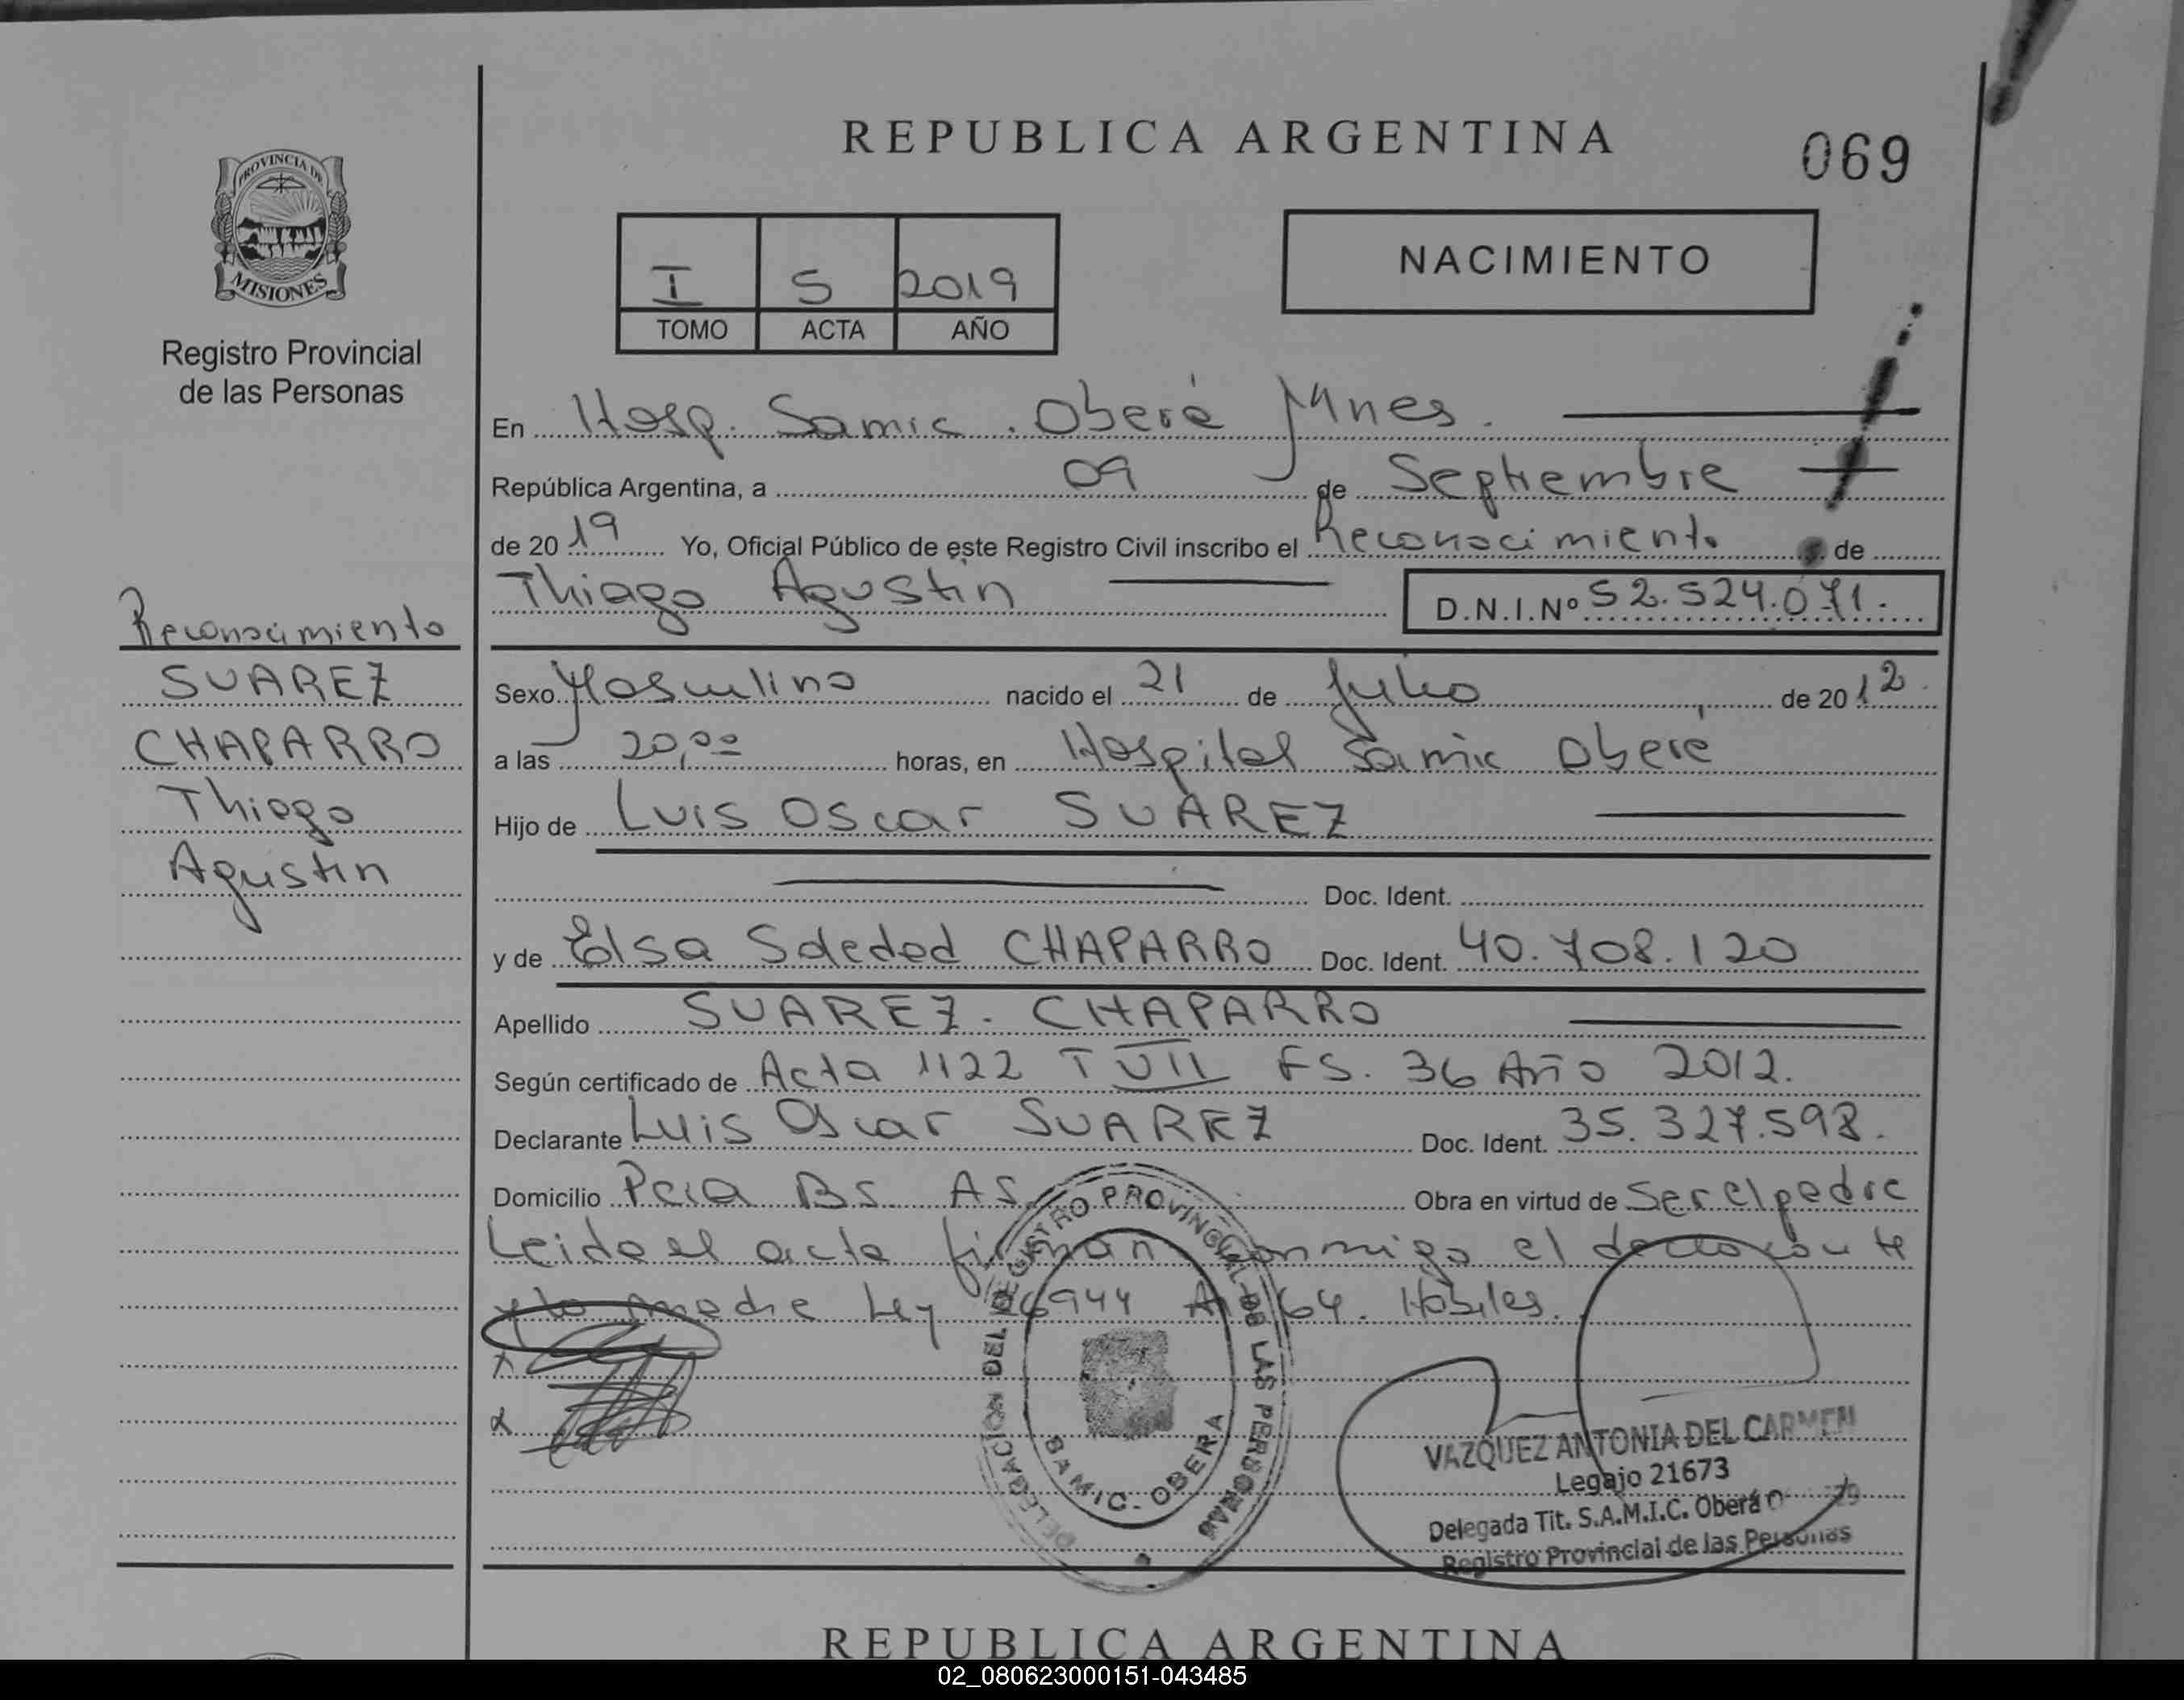 REPUBLICA ARGENTINA
069
PROVINCIA DE
MISIONES
Registro Provincial
de las Personas
I S 2019
TOMO ACTA AÑO
NACIMIENTO
En Hosp. Samic. Oberá Mnes.
República Argentina, a 09 de Septiembre
de 2019 Yo, Oficial Público de este Registro Civil inscribo el Reconocimiento de
Thiago Agustin D.N.I.Nº 52.524.071.
Reconocimiento
SUAREZ
CHAPARRO
Thiago
Agustin
Sexo Masculino nacido el 21 de Julio de 2012.
a las 20,00 horas, en Hospital Samic Oberá
Hijo de Luis Oscar SUAREZ
Doc. Ident.
y de Elsa Soledad CHAPARRO Doc. Ident. 40.708.120
Apellido SUAREZ. CHAPARRO
Según certificado de Acta 1122 T VII FS. 36 Año 2012.
Declarante Luis Oscar SUAREZ Doc. Ident. 35.327.598.
Domicilio Pcia Bs As Obra en virtud de Ser el padre
Leida el acta firman conmigo el declarante
y la madre Ley 26944 A 64. Habiles.
DELEGACION DEL REGISTRO PROVINCIAL DE LAS PERSONAS
SAMIC. OBERA
VAZQUEZ ANTONIA DEL CARMEN
Legajo 21673
Delegada Tit. S.A.M.I.C. Oberá
Registro Provincial de las Personas
REPUBLICA ARGENTINA
02_080623000151-043485